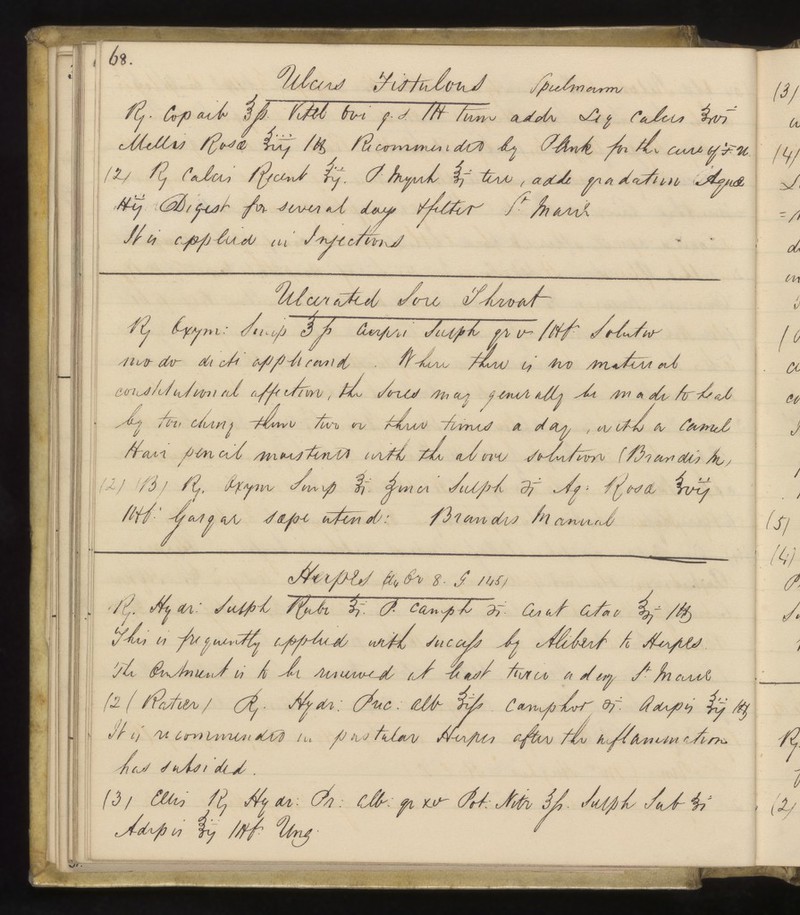 68.
Ulcers Fistulous Spielmann
℞. Copaib ℥ß Vitel Ovi q.s Ft tum adde Liq Calcis ℥vi
Mellis Rosæ ℥iij Ft Recommended by Plenk for the cure of F. U
(2) ℞ Calcis Recent ℥ij. P. Myrrh ℥i tere, adde gradatim Aquæ
℔ij Digest for several days & filter St. Marie
It is applied in Injections
Ulcerated Sore Throat
℞ Oxym: Simp ℥ß Cupri Sulph gr v Ft Solutio
modo dicti applicand. When there is no material
constitutional affection, the Sores may generally be made to heal
by touching them two or three times a day, with a Camel
Hair pencil moistened with the above solution (Brandis M)
(2) (B) ℞. Oxym Simp ℥i. Zinci Sulph ʒi Aq: Rosæ ℥vij
Ft: Gargar sæpe utend: Brandis Manual
Herpes
℞. Hydr: Sulph Rubr ʒi. P. Camph ʒi. Cerat Cetac ℥i Ft
This is frequently applied with success by Alibert to Herpes.
The Ointment is to be renewed at least twice a day St. Marie
(2 (Ratier) ℞. Hydr: Prec: Alb Camphor ʒi. Adipis ℥ij Ft
It is recommended in pustular Herpes after the inflammation
has subsided.
(3) Ellis ℞ Hydr: Pr: Alb: gr xv Pot: Nitr ʒß. Sulph Sub ʒi
Adipis ℥ij Ft Ung.
(3)
(4)
(5)
(4)
℞
(2)